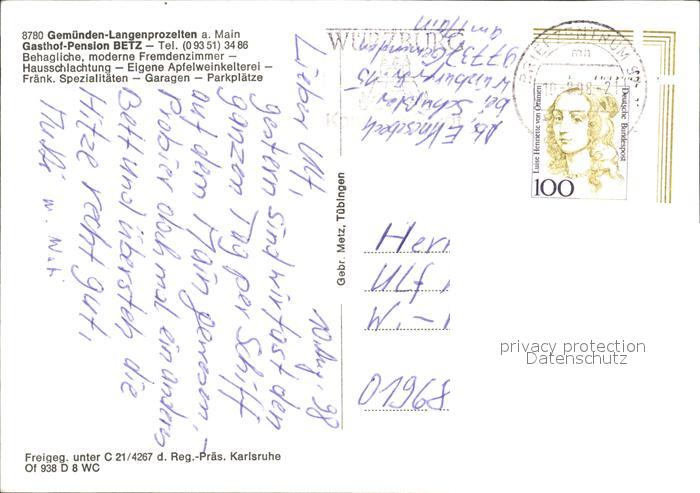 8780 Gemünden-Langenprozelten a. Main
Gasthof-Pension BETZ — Tel. (0 93 51) 34 86
Behagliche, moderne Fremdenzimmer —
Hausschlachtung — Eigene Apfelweinkelterei —
Fränk. Spezialitäten — Garagen — Parkplätze
Lieber Ulf,
gestern sind wir fast den
ganzen Tag per Schiff
auf dem Main gewesen, –
Probier doch mal ein anderes
Bett und übersteh die
Hitze recht gut,
Mutti
98
Abs.
bei
Würzburgerstr. 15
97737 Gemünden
am Main
WÜRZBURG
BRIEFZENTRUM
Luise Henriette von Oranien
Deutsche Bundespost
100
Gebr. Metz, Tübingen
Herr
Ulf
W. –
01968
privacy protection
Datenschutz
Freigeg. unter C 21/4267 d. Reg.-Präs. Karlsruhe
Of 938 D 8 WC